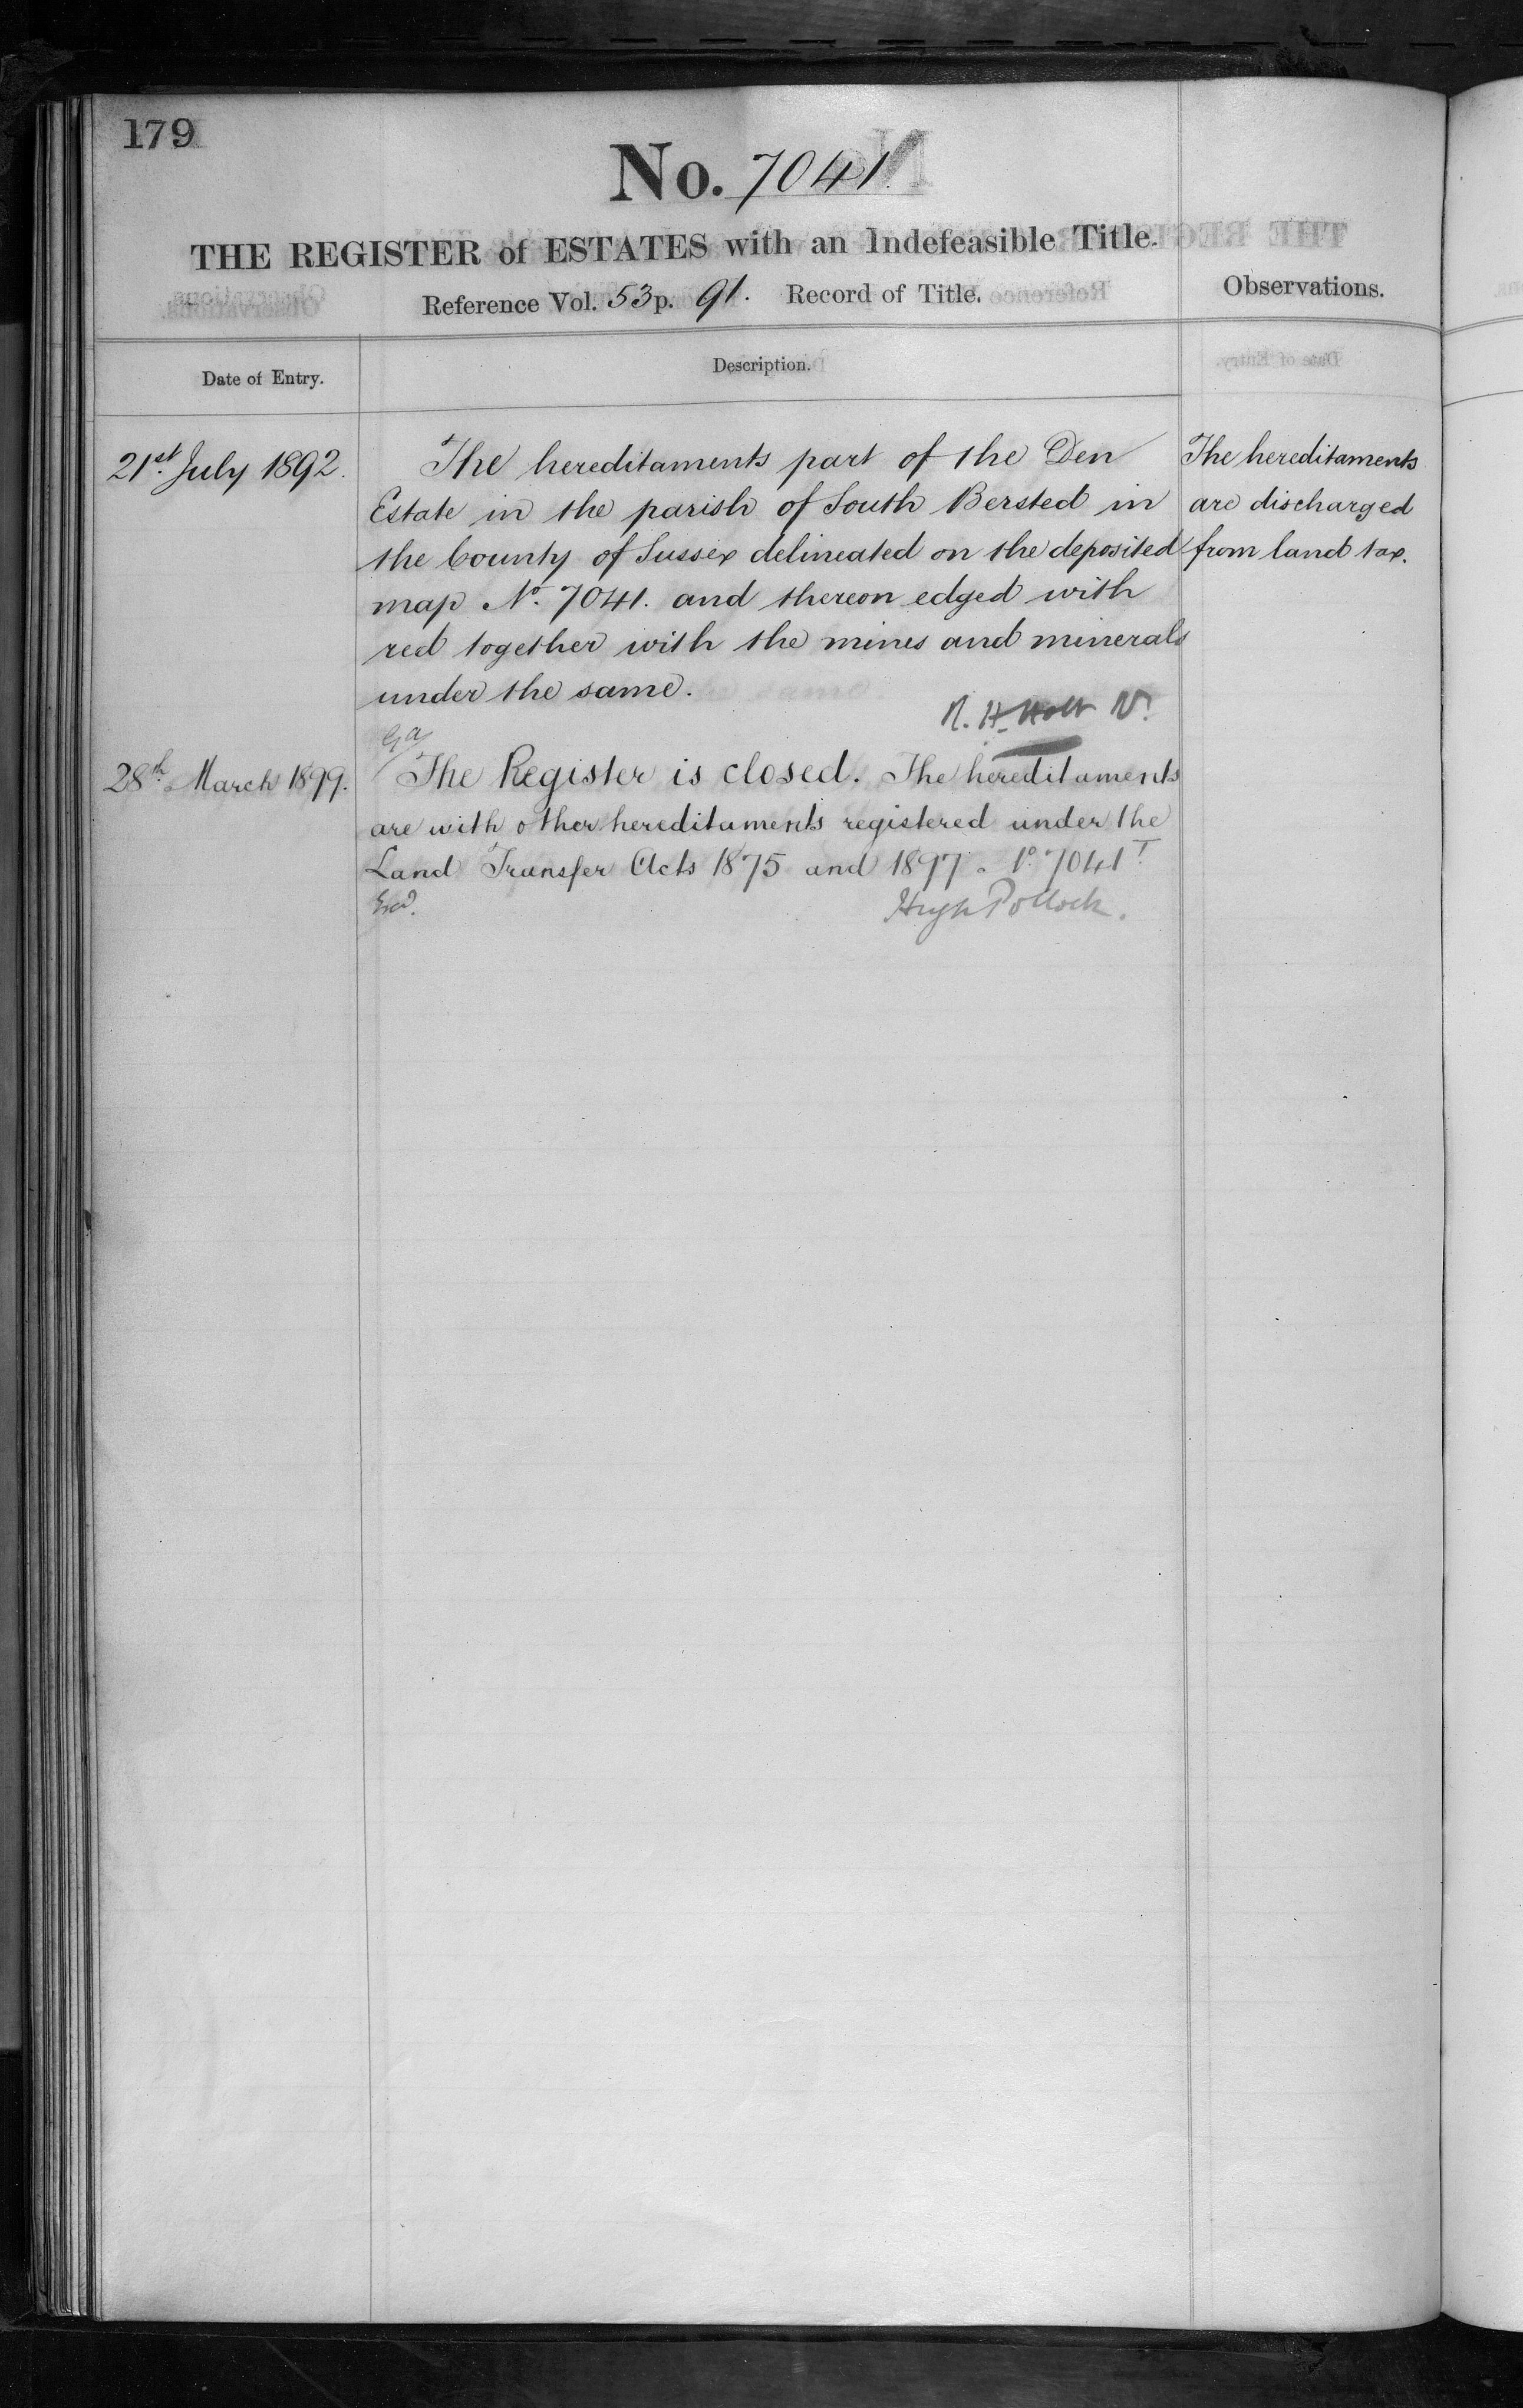 179
No. 7041.
THE REGISTER of ESTATES with an Indefeasible Title.
Reference Vol. 53 p. 91. Record of Title.
Observations.
Date of Entry.
Description.
21st July 1892.
The hereditaments part of the Den
Estate in the parish of South Bersted in
the County of Sussex delineated on the deposited
map No. 7041. and thereon edged with
red together with the mines and minerals
under the same.
R. H. Holt
The hereditaments
are discharged
from land tax.
28th March 1899.
The Register is closed. The hereditaments
are with other hereditaments registered under the
Land Transfer Acts 1875 and 1897. No. 7041 T.
Hugh Pollock.